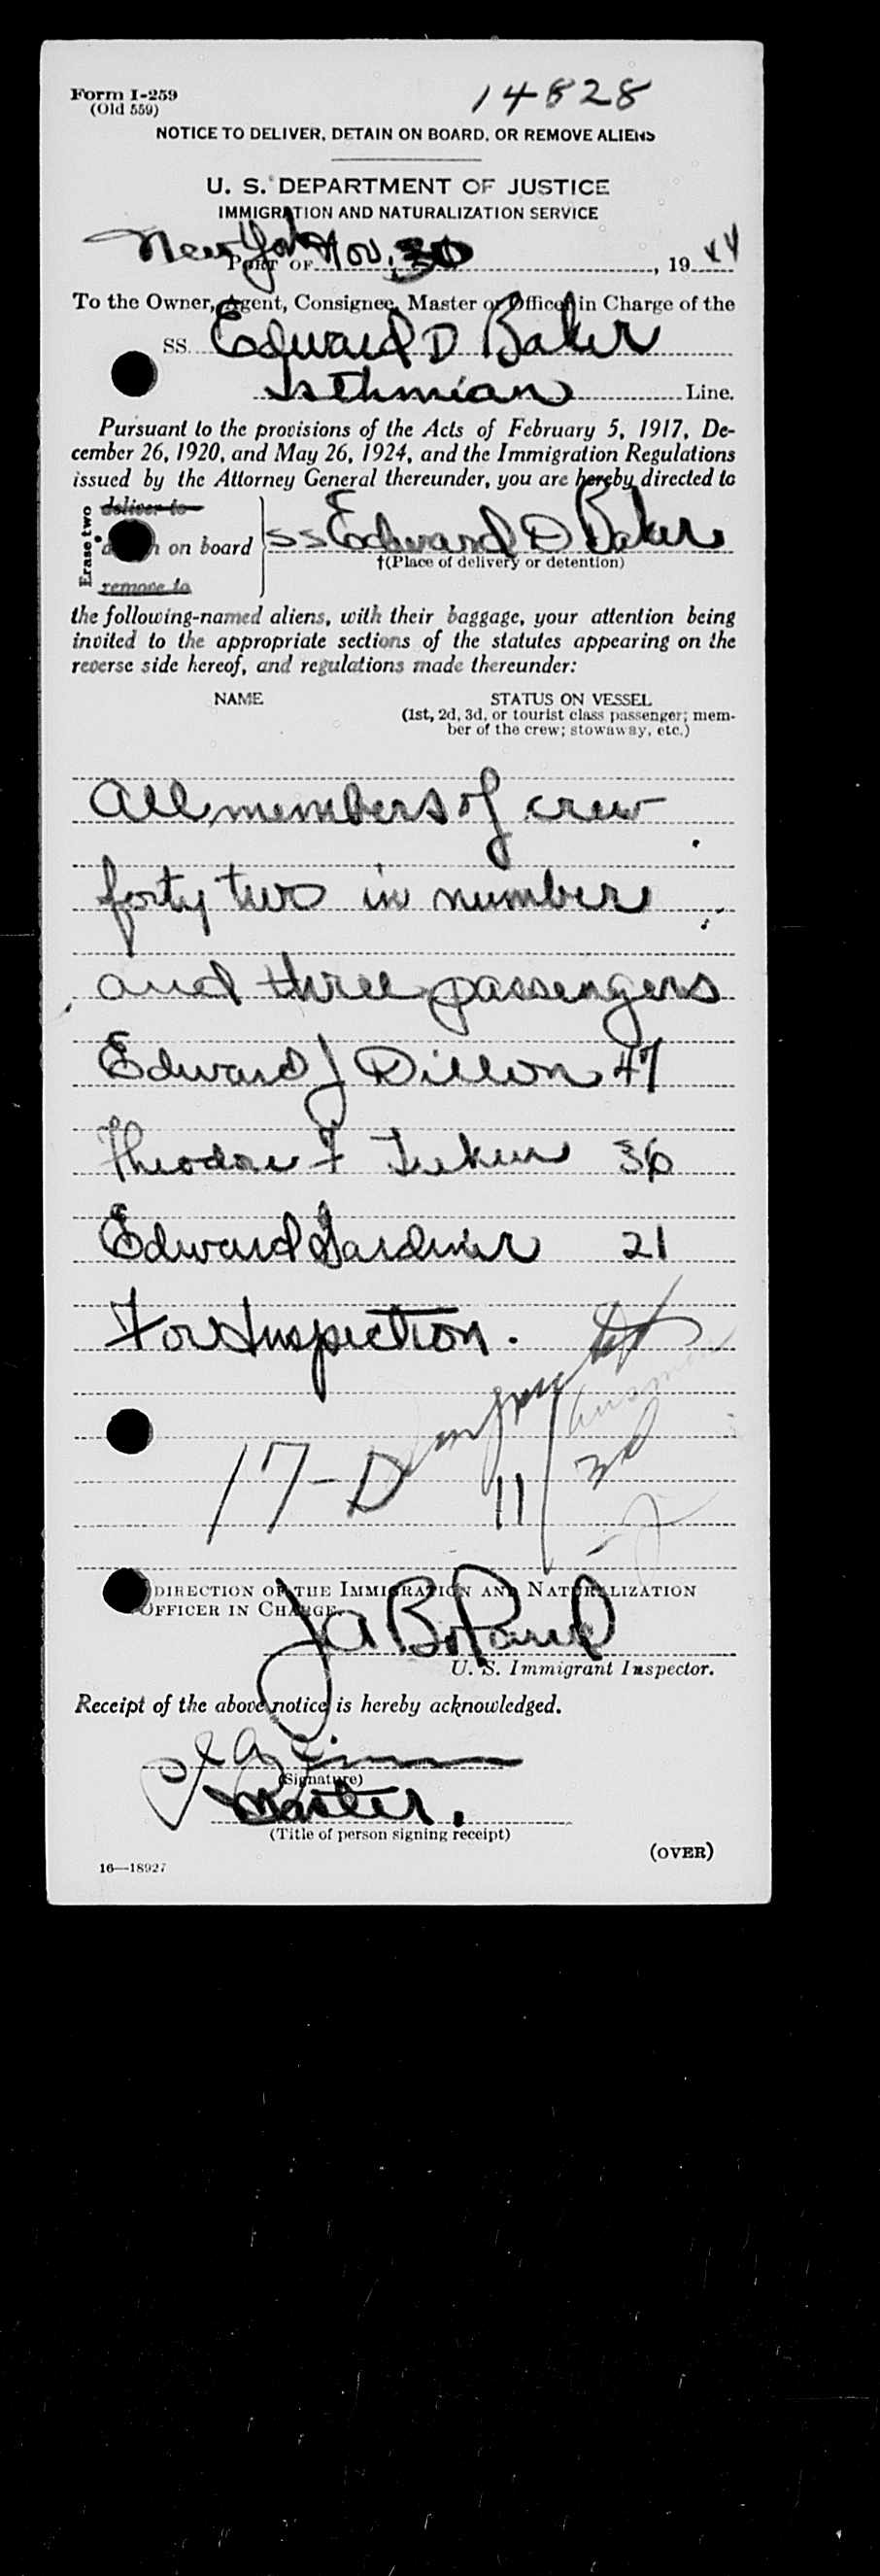 Form I-259
(Old 559)
14828
NOTICE TO DELIVER, DETAIN ON BOARD, OR REMOVE ALIENS
U. S. DEPARTMENT OF JUSTICE
IMMIGRATION AND NATURALIZATION SERVICE
New York Nov. 30
PORT OF , 19 44
To the Owner, Agent, Consignee, Master or Officer in Charge of the
SS. Edward D Baker
Isthmian Line.
Pursuant to the provisions of the Acts of February 5, 1917, De-
cember 26, 1920, and May 26, 1924, and the Immigration Regulations
issued by the Attorney General thereunder, you are hereby directed to
Erase two
deliver to
on board
remove to
SS Edward D Baker
†(Place of delivery or detention)
the following-named aliens, with their baggage, your attention being
invited to the appropriate sections of the statutes appearing on the
reverse side hereof, and regulations made thereunder:
NAME STATUS ON VESSEL
(1st, 2d, 3d, or tourist class passenger; mem-
ber of the crew; stowaway, etc.)
All members of crew
forty two in number
and three passengers
Edward J Dillon 47
Theodore F 36
Edward Gardiner 21
For Inspection.
17-D
11
DIRECTION OF THE IMMIGRATION AND NATURALIZATION
OFFICER IN CHARGE
J A Boland
U. S. Immigrant Inspector.
Receipt of the above notice is hereby acknowledged.
(Signature)
Master.
(Title of person signing receipt)
(OVER)
16—18927